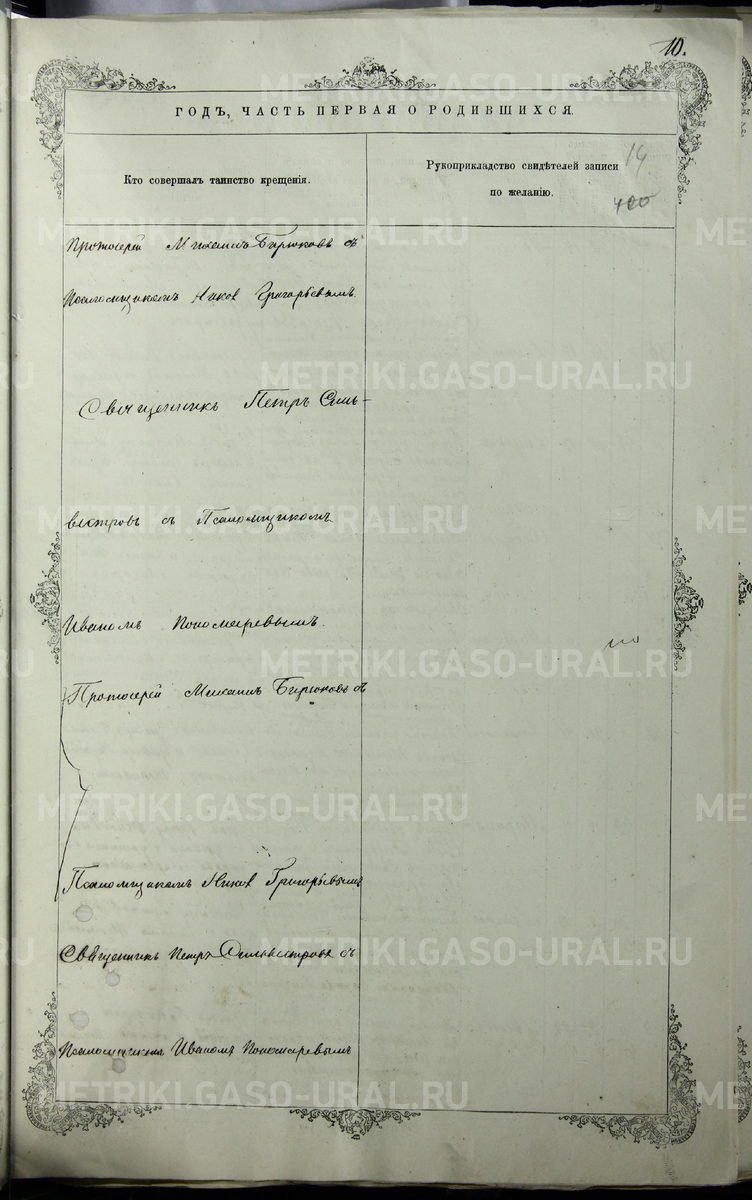 10.
ГОДЪ, ЧАСТЬ ПЕРВАЯ О РОДИВШИХСЯ.
Кто совершалъ таинство крещенія.
Рукоприкладство свидѣтелей записи
по желанію.
14
400
Протоіерей Михаилъ Бирюковъ съ
Псаломщикомъ Григорьевымъ.
Священникъ Петръ Силь-
вестровъ съ Псаломщикомъ
Иваномъ Пономаревымъ.
Протоіерей Михаилъ Бирюковъ съ
Псаломщикомъ Григорьевымъ
Священникъ Петръ Сильвестровъ съ
Псаломщикомъ Иваномъ Пономаревымъ
METRIKI.GASO-URAL.RU